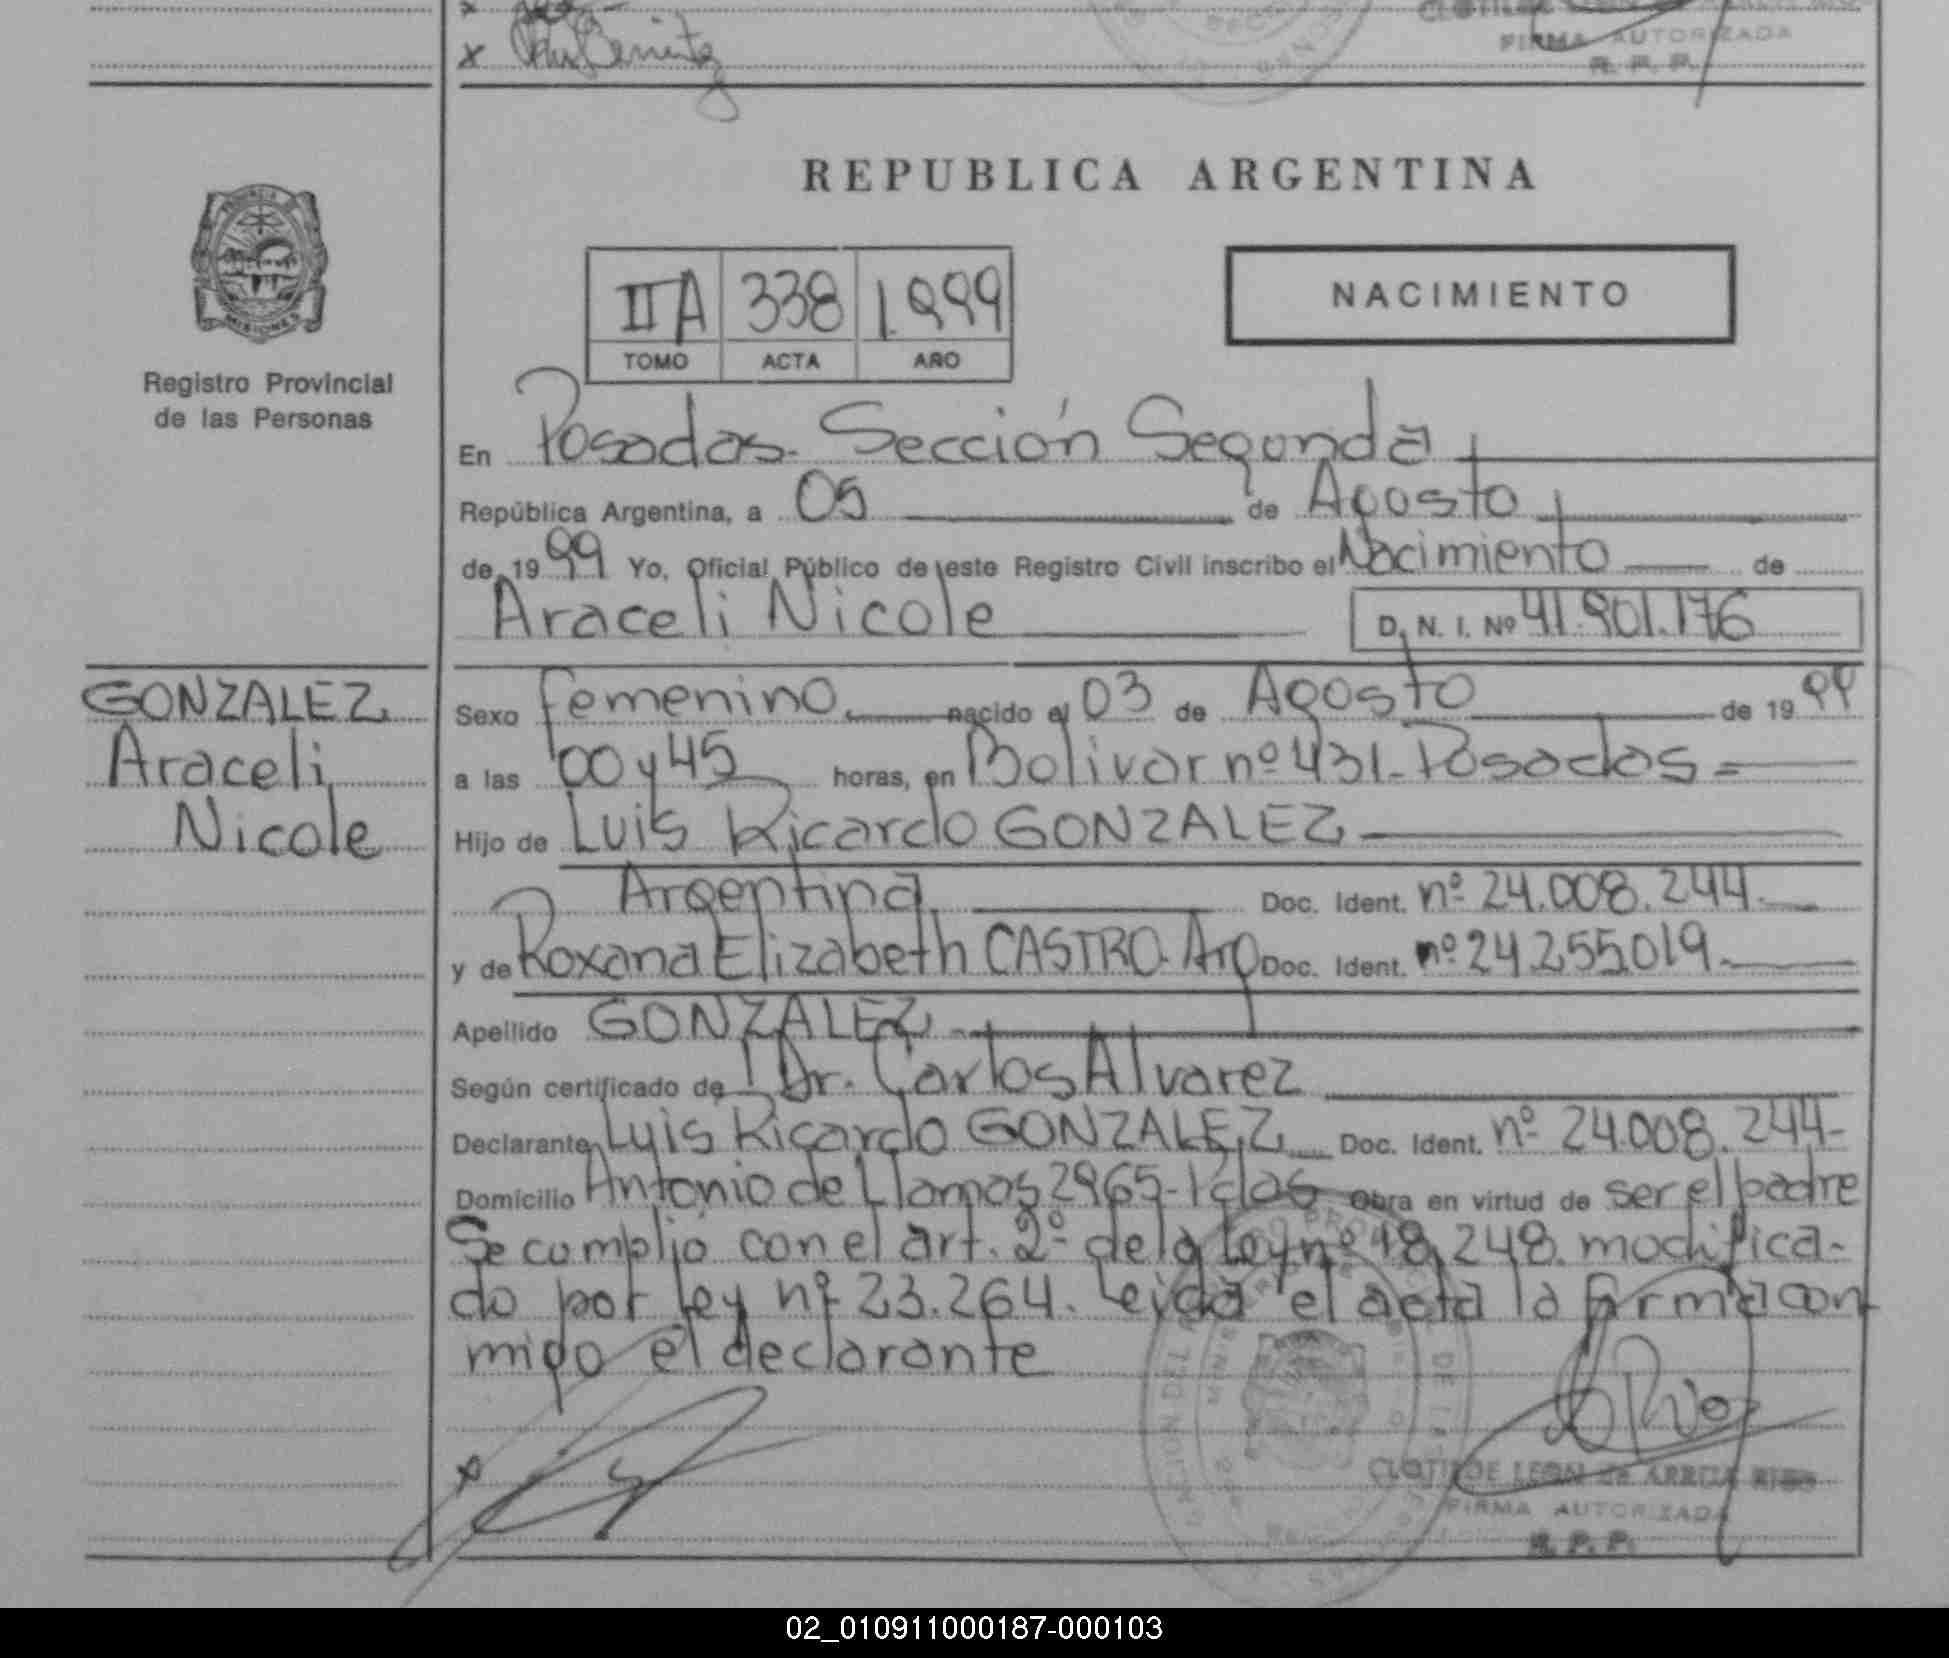 x
x Benitez
FIRMA AUTORIZADA
R. P. P.
REPUBLICA ARGENTINA
MISIONES
Registro Provincial
de las Personas
II A 338 1.999
TOMO ACTA AÑO
NACIMIENTO
En Posadas. Sección Segunda
República Argentina, a 05 de Agosto
de 1999 Yo, Oficial Público de este Registro Civil inscribo el Nacimiento de
Araceli Nicole D. N. I. Nº 41.901.176
GONZALEZ
Araceli
Nicole
Sexo femenino nacido el 03 de Agosto de 1999
a las 00 y 45 horas, en Bolivar nº 431. Posadas =
Hijo de Luis Ricardo GONZALEZ
Argentina Doc. Ident. nº 24.008.244.
y de Roxana Elizabeth CASTRO. Arg Doc. Ident. nº 24.255.019.
Apellido GONZALEZ
Según certificado de Dr. Carlos Alvarez
Declarante Luis Ricardo GONZALEZ Doc. Ident. nº 24.008.244-
Domicilio Antonio de Llamas 2965- Obra en virtud de ser el padre
Se cumplió con el art. 2º de la ley nº 18.248. modifica-
do por ley nº 23.264. Leida el acta la firma con
migo el declarante
x
CLOTILDE LEON de ARRUA RIOS
FIRMA AUTORIZADA
R. P. P.
02_010911000187-000103